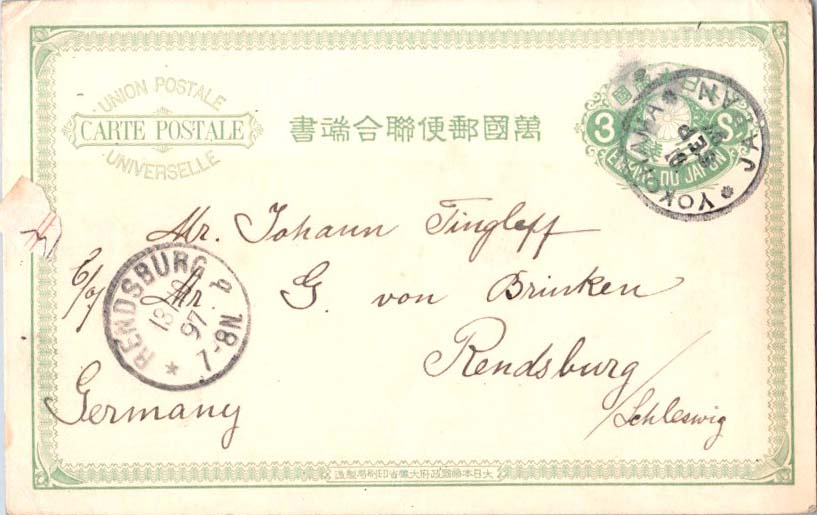 UNION POSTALE
CARTE POSTALE
UNIVERSELLE
萬國郵便聯合端書
3 Sn
EMPIRE DU JAPON
YOKOHAMA
JAPAN
SEP
Mr. Johann Tingleff
c/of Mr. G. von Brinken
Rendsburg
/Schleswig
Germany
RENDSBURG
97
7-8N
大日本帝國政府大藏省印刷局製造